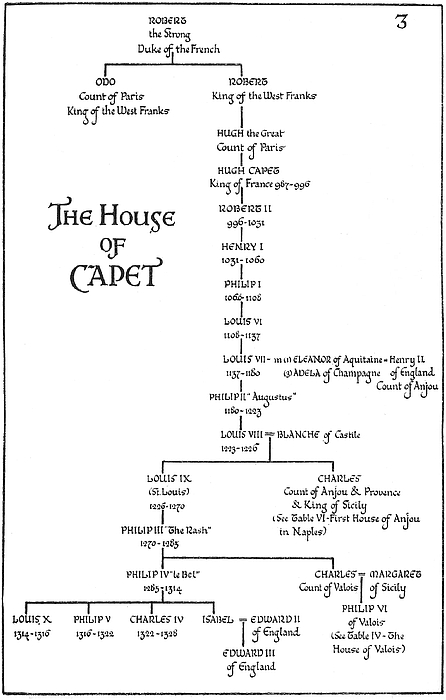 3
ROBERT
the Strong
Duke of the French
ODO
Count of Paris
King of the West Franks
ROBERT
King of the West Franks
HUGH the Great
Count of Paris
HUGH CAPET
King of France 987-996
THE HOUSE
OF
CAPET
ROBERT II
996-1031
HENRY I
1031-1060
PHILIP I
1060-1108
LOUIS VI
1108-1137
LOUIS VII - m (1) ELEANOR of Aquitaine = Henry II
1137-1180 (3) ADELA of Champagne of England
Count of Anjou
PHILIP II "Augustus"
1180-1223
LOUIS VIII = BLANCHE of Castile
1223-1226
LOUIS IX
(St. Louis)
1226-1270
CHARLES
Count of Anjou & Provence
& King of Sicily
(See Table VI-First House of Anjou
in Naples)
PHILIP III "The Rash"
1270-1285
PHILIP IV "le Bel"
1285-1314
CHARLES = MARGARET
Count of Valois of Sicily
LOUIS X
1314-1316
PHILIP V
1316-1322
CHARLES IV
1322-1328
ISABEL = EDWARD II
of England
EDWARD III
of England
PHILIP VI
of Valois
(See Table IV-The
House of Valois)